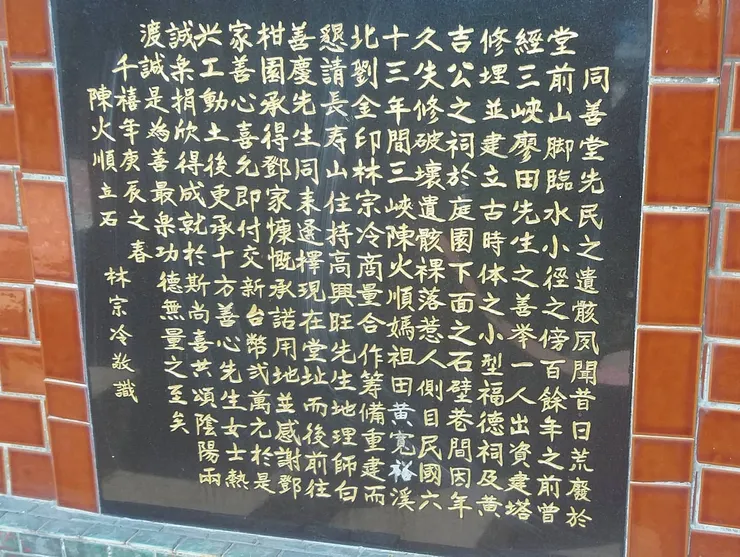 同善堂先民之遺骸夙聞昔日荒廢於
堂前山脚臨水小徑之傍百餘年之前曾
經三峽廖田先生之善举一人出資建塔
修埋並建立古時体之小型福德祠及黄
吉公之祠於庭園下面之石壁巷間因年
久失修破壞遺骸裸落惹人側目民國六
十三年間三峽陳火順媽祖田黄寬裕溪
北劉金印林宗冷商量合作筹備重建而
懇請長寿山住持高興旺先生地理師白
善慶先生同来選擇現在堂址而後前往
柑園承得鄧家慷慨承諾用地並感謝鄧
家善心喜允即付交新台幣弍萬元於是
兴工動土後更承十方善心先生女士熱
誠樂捐欣得成就於斯尚喜共頌陰陽兩
渡誠是為善最樂功德無量之至矣
千禧年庚辰之春
陳火順立石 林宗冷敬識